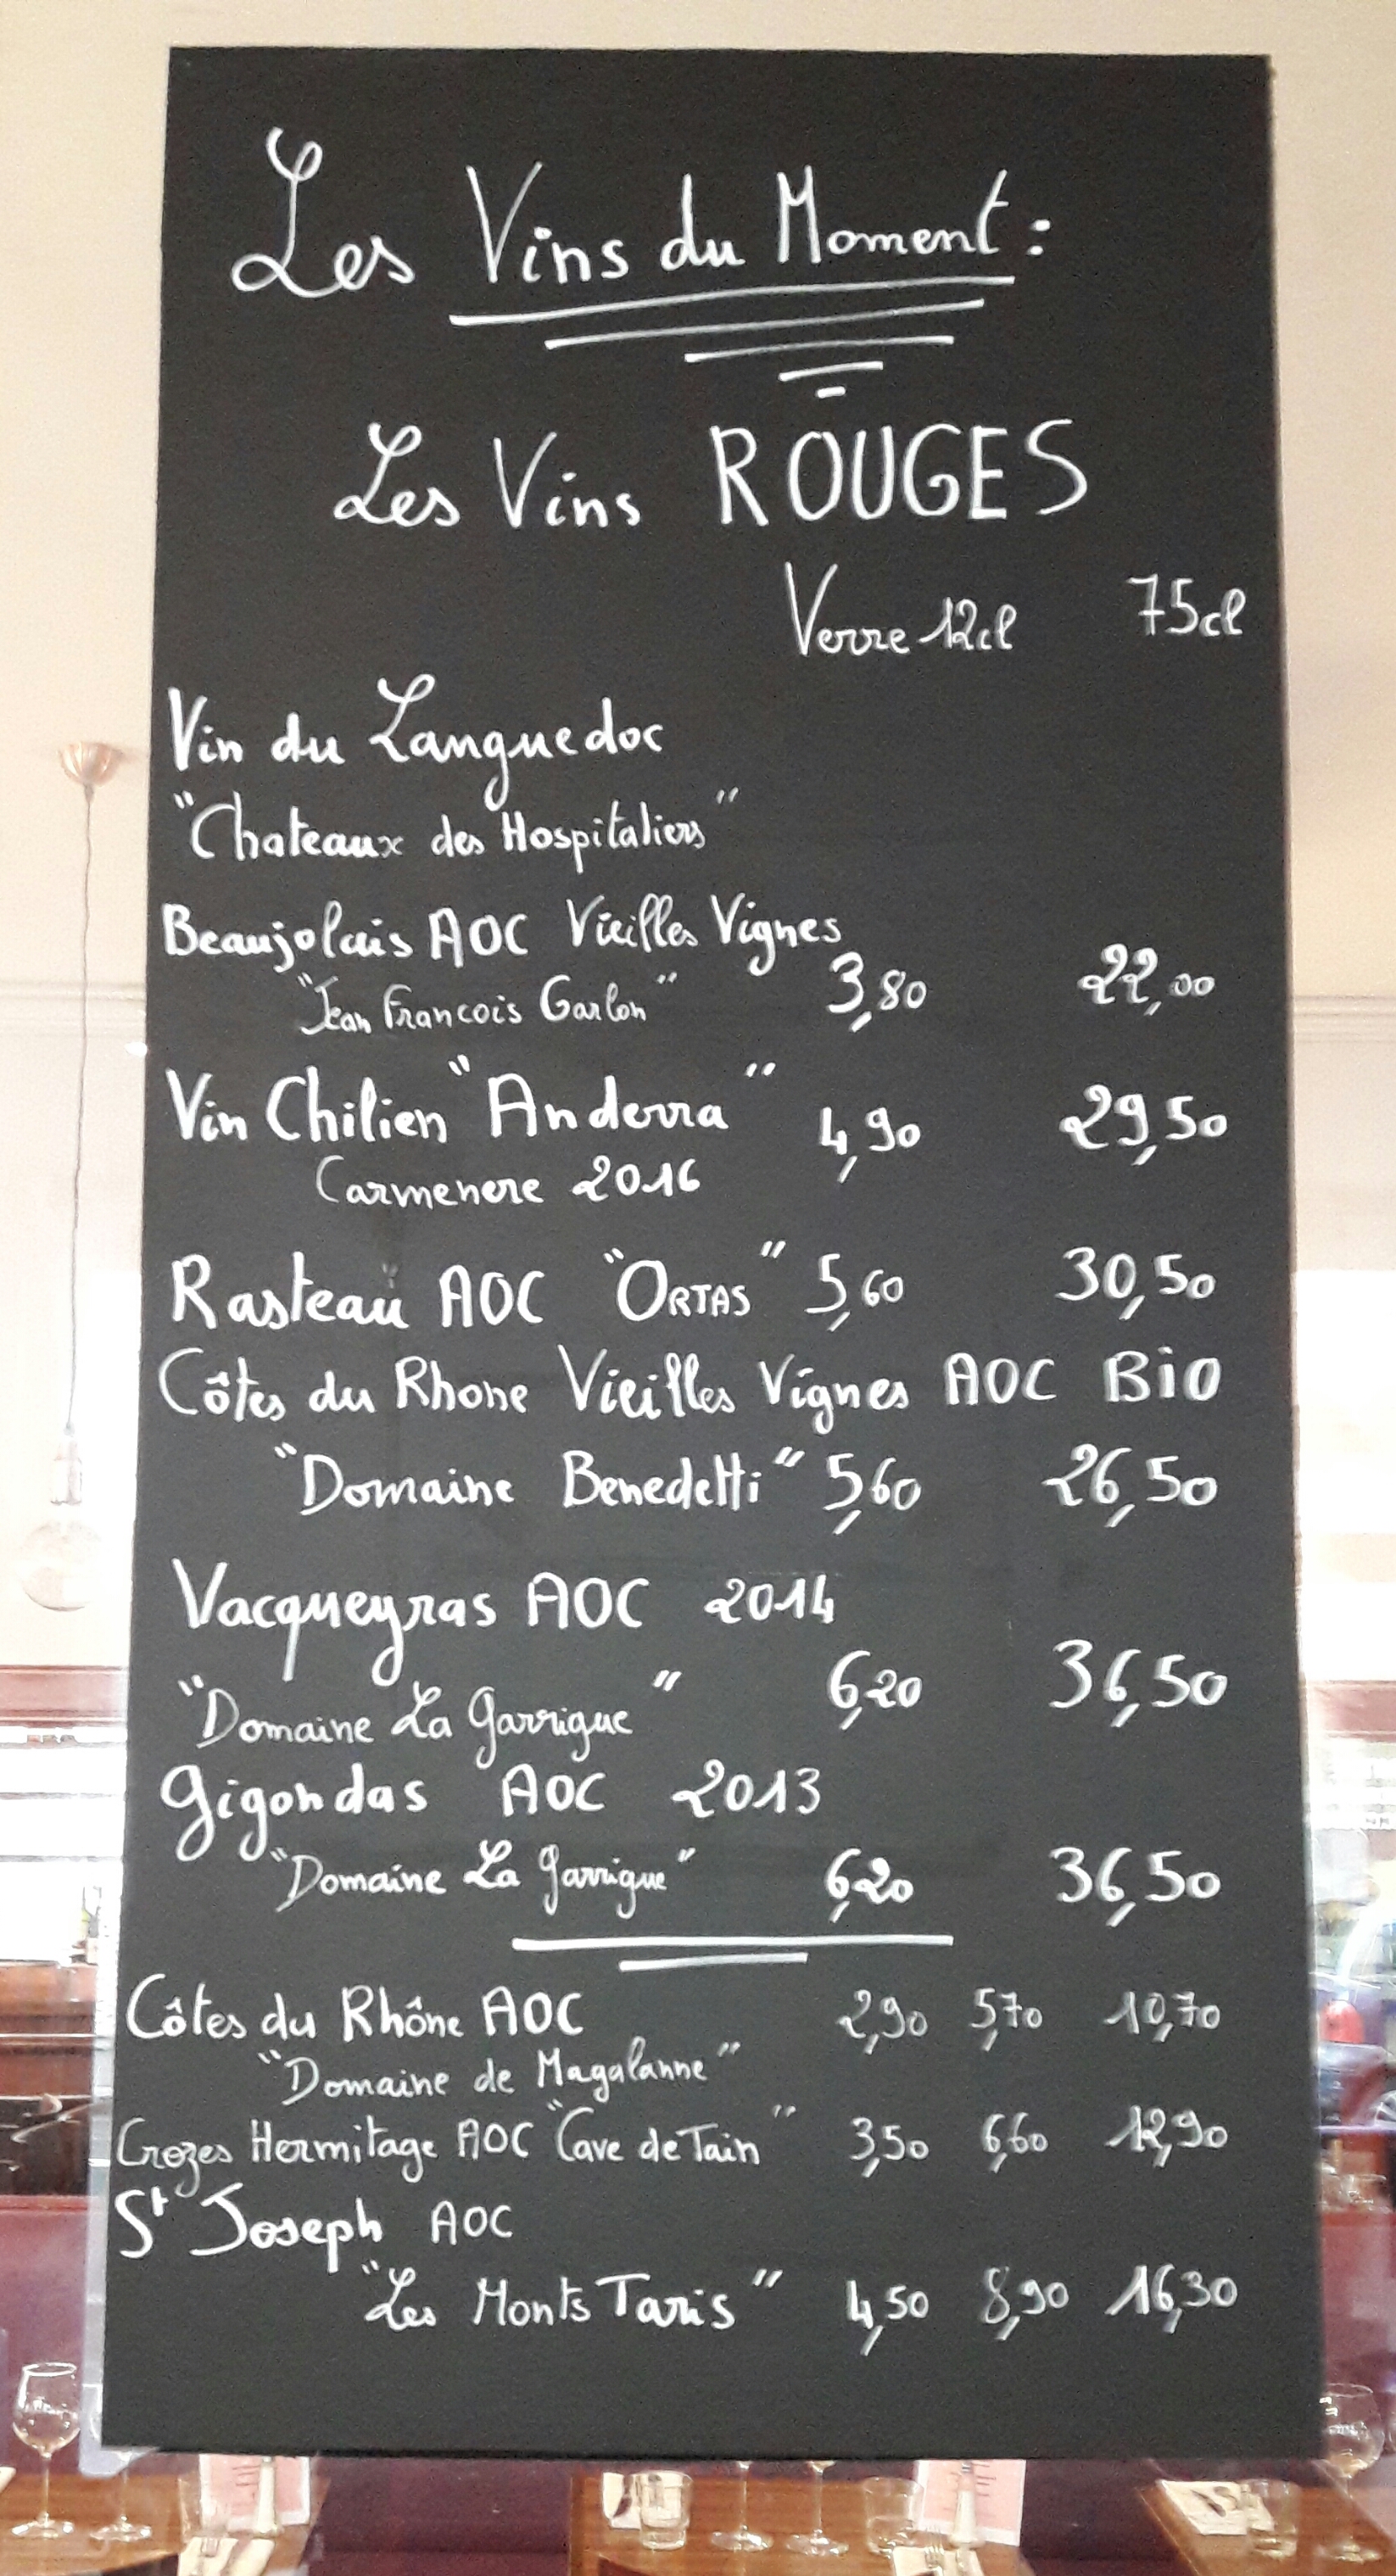 Les Vins du Moment :
Les Vins ROUGES
Verre 12cl 75cl
Vin du Languedoc
"Chateaux des Hospitaliers"
Beaujolais AOC Vieilles Vignes
"Jean Francois Garlon" 3,80 22,00
Vin Chilien "Anderra" 4,90 29,50
Carmenere 2016
Rasteau AOC "ORTAS" 5,60 30,50
Côtes du Rhone Vieilles Vignes AOC BiO
"Domaine Benedetti" 5,60 26,50
Vacqueyras AOC 2014
"Domaine La Garrigue" 6,20 36,50
Gigondas AOC 2013
"Domaine La Garrigue" 6,20 36,50
Côtes du Rhône AOC 2,90 5,70 10,70
"Domaine de Magalanne"
Crozes Hermitage AOC "Cave de Tain" 3,50 6,60 12,90
St Joseph AOC
"Les Monts Taris" 4,50 8,90 16,30